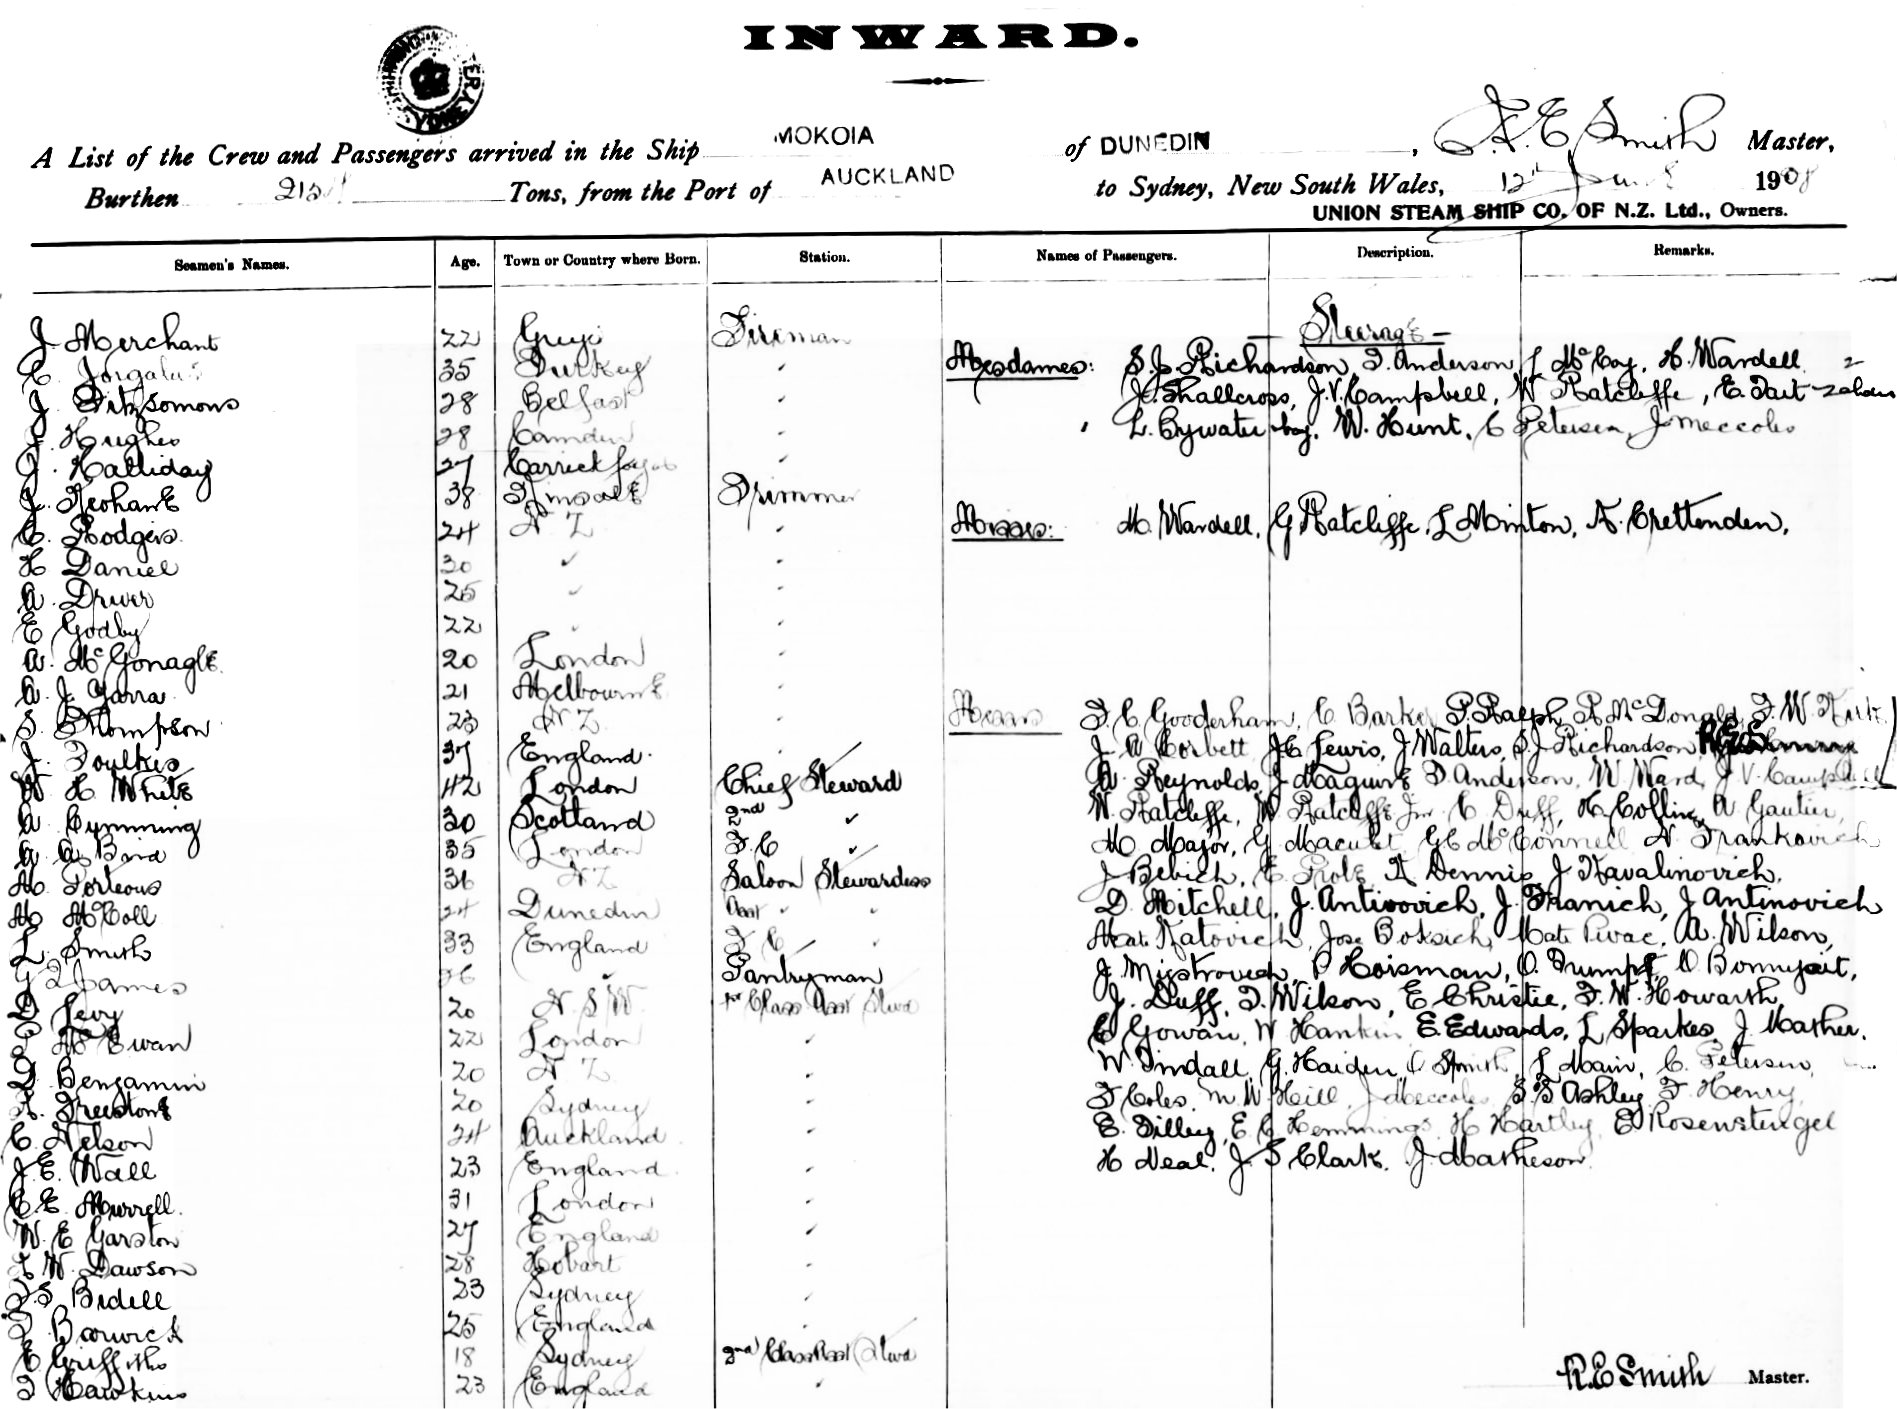 INWARD.
A List of the Crew and Passengers arrived in the Ship MOKOIA of DUNEDIN, E Smith Master,
Burthen Tons, from the Port of AUCKLAND to Sydney, New South Wales, 12th 1908
UNION STEAM SHIP CO. OF N.Z. Ltd., Owners.
Seamen's Names. Age. Town or Country where Born. Station. Names of Passengers. Description. Remarks.
Steerage
J Merchant 22 Fireman
C. 35 Turkey "
J Fitzsomons 28 Belfast "
J. Hughes 28 Camden "
J. Halliday 27 "
J. 38 Trimmer
C. Rodgers 24 N Z "
H Daniel 30 " "
A. Driver 25 " "
E Godby 22 " "
A. McGonagle 20 London "
A J Yarra 21 Melbourne "
S. Thompson 23 N Z "
J. Foulkes 37 England "
W H White 42 London Chief Steward
A Cumming 30 Scotland 2nd "
A A Baird 35 London F. C "
M Porteous 36 N Z Saloon Stewardess
M McColl 24 Dunedin Asst " "
L Smith 33 England F C " "
James 26 " Pantryman
D Levy 20 N. S. W. 1st Class Asst Stwd
P McEwan 22 London "
D Benjamin 20 N. Z "
A. Freestone 20 Sydney "
C. Nelson 24 Auckland "
J. E. Wall 23 England "
C E Murrell. 31 London "
W. E Garston 27 England "
W. Dawson 28 Hobart "
S Bedell 23 Sydney "
Barwick 25 England "
E Griffiths 18 Sydney 2nd Class Asst Stwd
Hawkins 23 England "
Mesdames: S. J. Richardson, F. Anderson, L McCoy, H. Wardell 2
J. Shallcross, J. V. Campbell, W Ratcliffe, E. Tait
L. Bywater W. Hunt, C Petersen, J Meccoles
Misses: M. Wardell, G Ratcliffe, L Minton, A. Crettenden,
Messrs F. C. Gooderham, C Barker P. Ralph, R McDonald, F. W.
J. A Corbett, J C Lewis, J Walters, S. J Richardson
A Reynolds, J Maguire F Anderson, W Ward, J V Campbell
W. Ratcliffe, W. Ratcliffe Jnr C Duff, H. Collins, A Gautier,
M Major, G McConnell N Frankovich
J Bebich, E. A Dennis, J Navalinovich,
D. Mitchell, J. Antinovich, J Franich, J Antinovich
Mate Katovich, Jose Boksich, Mate Pivac, A. Wilson,
J P Hoisman,
J. Duff, F. Wilson, E Christie, F. W. Howarth,
C Gowan, W Hankin E. Edwards, L Sparkes, J. Mather.
W. Tindall, G. Haiden Smith, L Main, C. Petersen,
F Coles, M W Hill, J Meccoles, S. S Ashley F Henry,
E. Dilley, E. C Hemmings, H Hartley, E Rosenstengel
H Neal, J. S Clark, J. Matheson
R. E Smith Master.